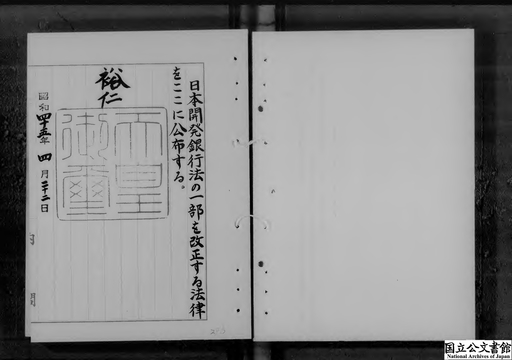 日本開発銀行法の一部を改正する法律
をここに公布する。
裕仁
天皇
御璽
昭和四十五年四月二十二日
国立公文書館
National Archives of Japan